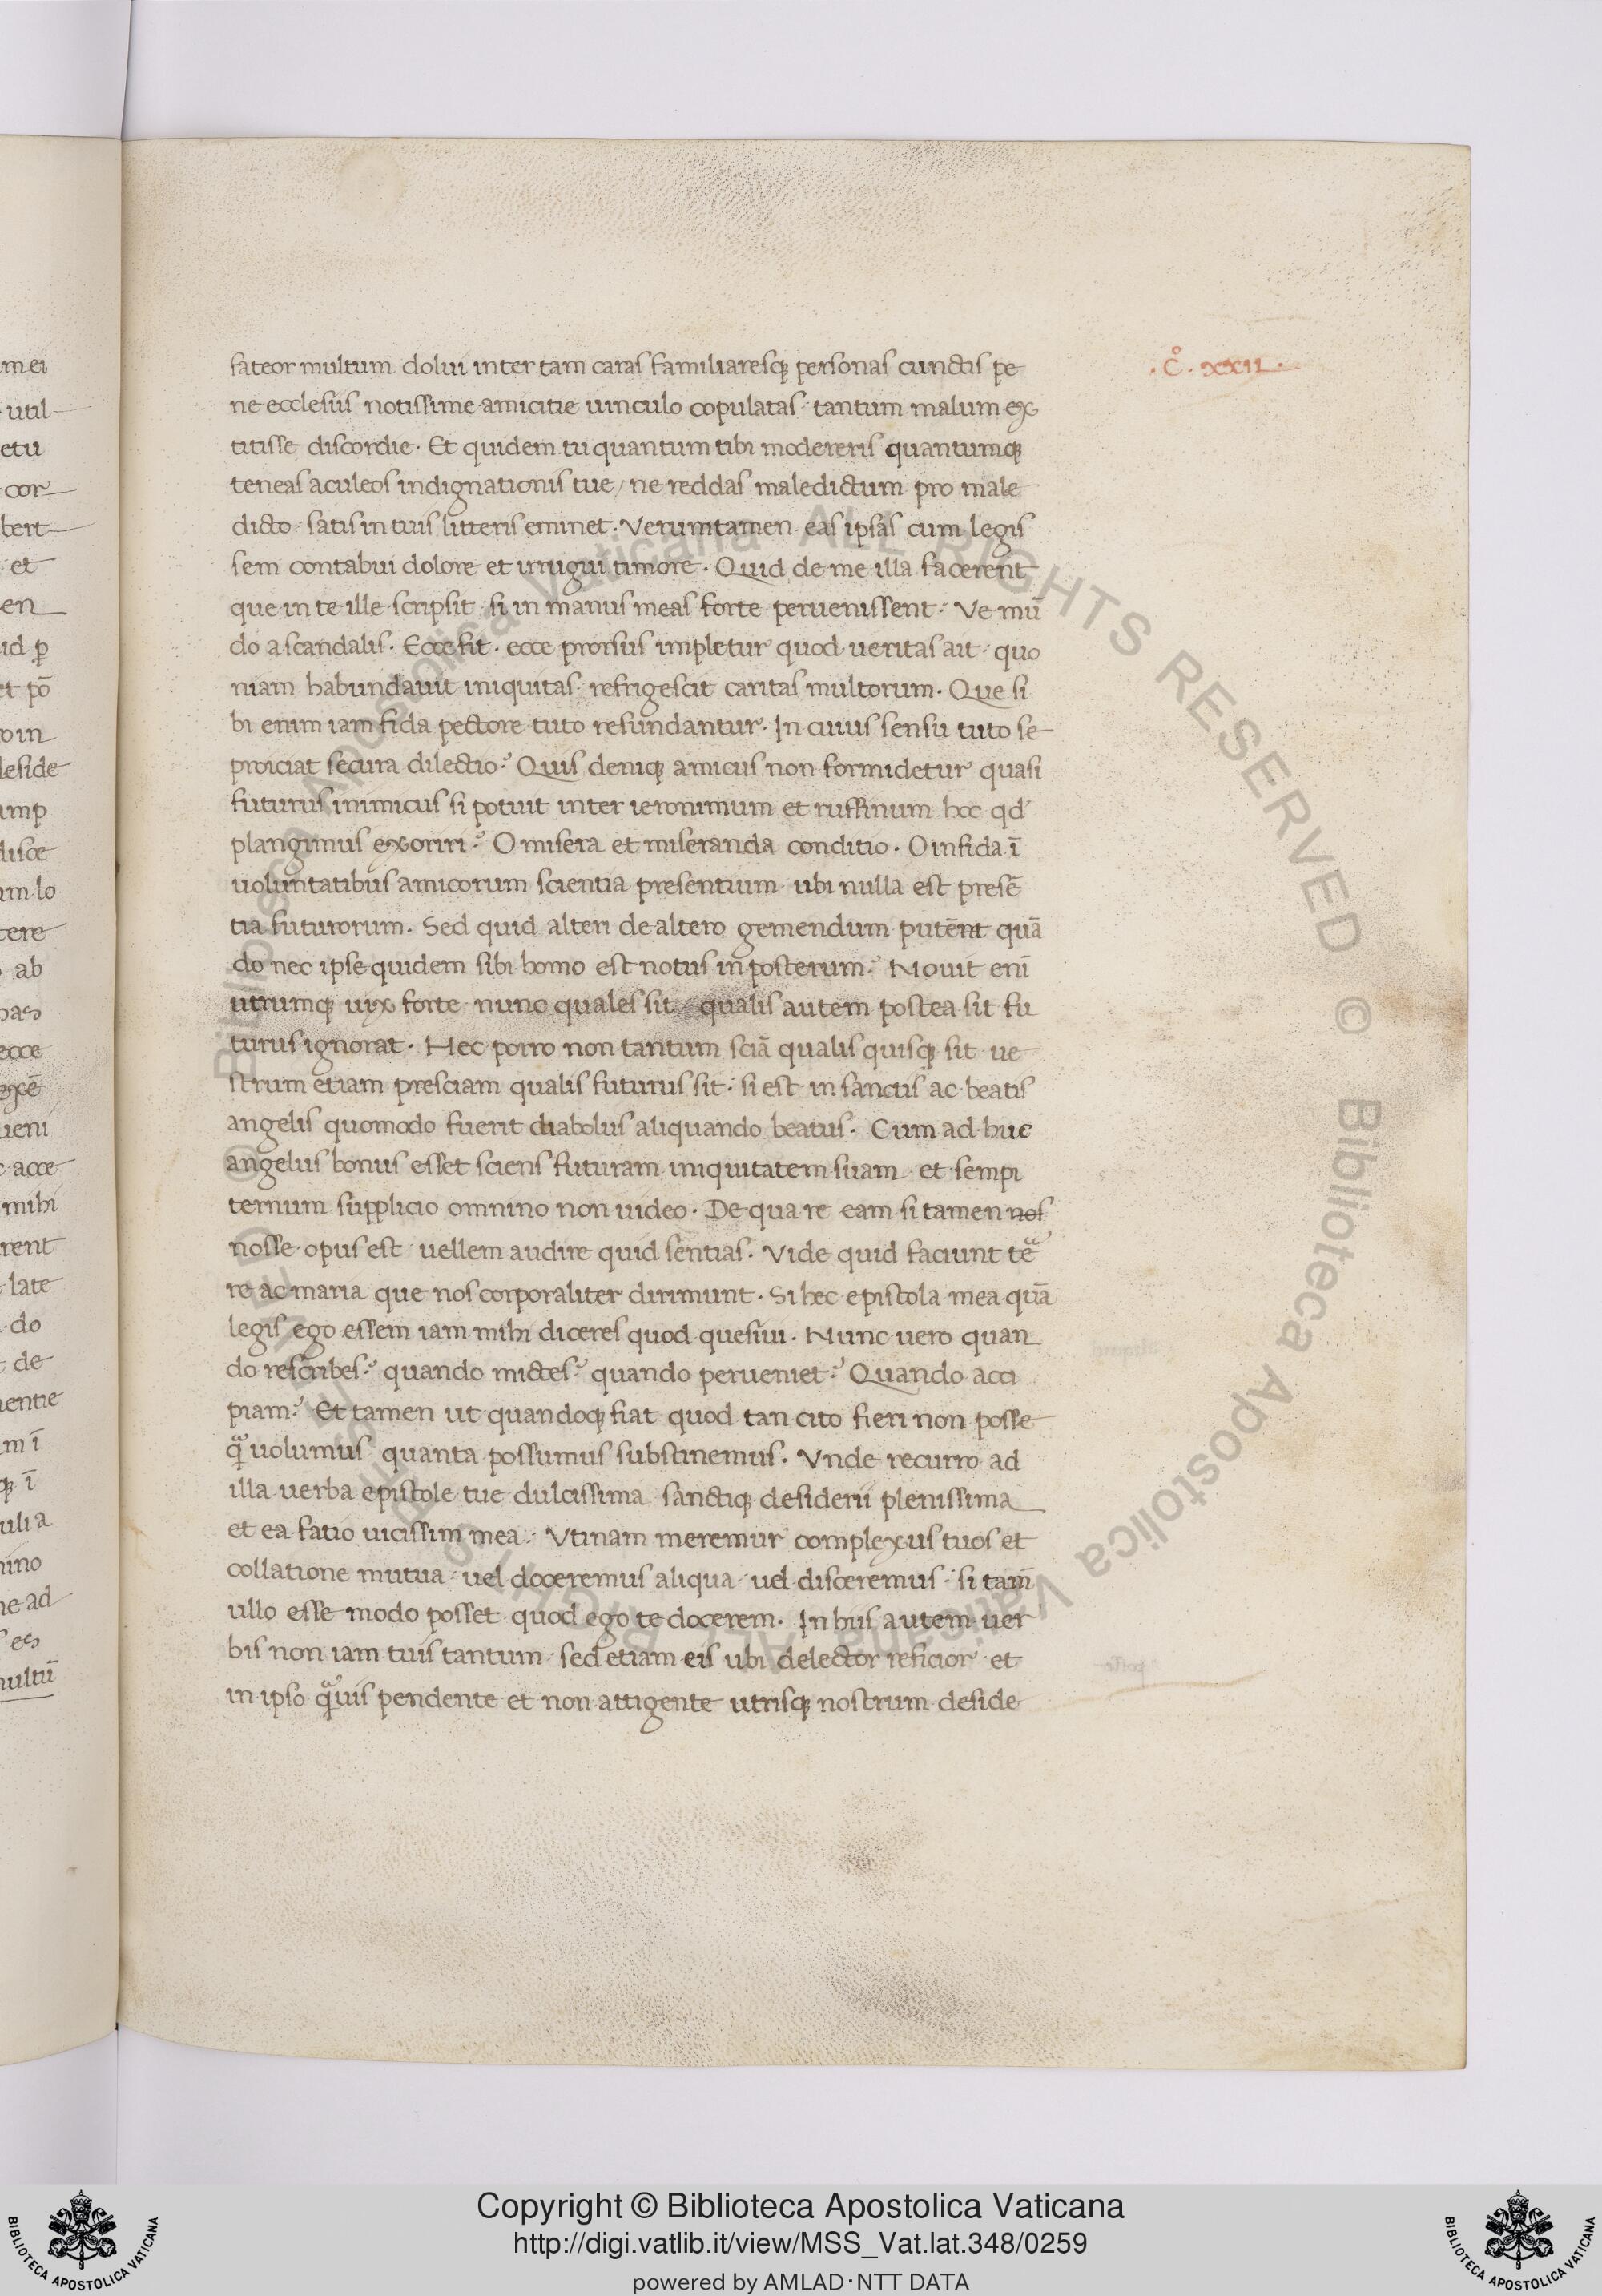 fateor multum dolui inter tam caras familiaresq; personas cunctis pe
ne ecclesiis notissime amicitie uinculo copulatas tantum malum ex
titisse discordie. Et quidem tu quantum tibi modereris quantumq;
teneas aculeos indignationis tue / ne reddas maledictum pro male
dicto satis in tuis litteris eminet. Verumtamen eas ipsas cum legis
sem contabui dolore et irrigui timore. Quid de me illa facerent
que in te ille scripsit si in manus meas forte peruenissent. Ve mū
do a scandalis. Ecce fit. ecce prorsus impletur quod ueritas ait. quo
niam habundauit iniquitas refrigescit caritas multorum. Que si
bi enim iam fida pectore tuto refundantur. In cuius sensu tuto se
proiciat secura dilectio? Quis deniq; amicus non formidetur quasi
futurus inimicus si potuit inter ieronimum et ruffinum hoc qd
plangimus exoriri? O misera et miseranda conditio. O infida ī
uoluntatibus amicorum scientia presentium ubi nulla est presē
tia futurorum. Sed quid alteri de altero gemendum putēnt quā
do nec ipse quidem sibi homo est notus in posterum? Nouit enī
utrumq; uix forte nunc quales sit qualis autem postea sit fu
turus ignorat. Hec porro non tantum sciā qualis quisq; sit ue
strum etiam presciam qualis futurus sit. si est in sanctis ac beatis
angelis quomodo fuerit diabolus aliquando beatus. Cum ad huc
angelus bonus esset sciens futuram iniquitatem suam et sempi
ternum supplicio omnino non uideo. De qua re eam si tamen nos
nosse opus est uellem audire quid sentias. Vide quid faciunt te
re ac maria que nos corporaliter dirimunt. Si hec epistola mea quā
legis ego essem iam mihi diceres quod quesiui. Nunc uero quan
do rescribes? quando mictes? quando perueniet? Quando acci
piam? Et tamen ut quandoq; fiat quod tan cito fieri non posse
qͣ uolumus quanta possumus substinemus. Vnde recurro ad
illa uerba epistole tue dulcissima sanctiq; desiderii plenissima
et ea fatio uicissim mea. Vtinam meremur complexus tuos et
collatione mutua uel doceremus aliqua uel disceremus. si tam̄
ullo esse modo posset quod ego te docerem. In hiis autem uer
bis non iam tuis tantum sed etiam eis ubi delector reficior et
in ipso qͣuis pendente et non attigente utrisq; nostrum deside
.c̊. xxii.
mei
util
etu
cor
bert
et
en
id p̄
et pō
oin
leside
imp
disce
um lo
tere
ab
ecce
ueni
acce
mihi
rent
late
do
de
entie
m ī
q; ī
uli a
nino
ne ad
multū
© Biblioteca Apostolica Vaticana ALL RIGHTS RESERVED © Biblioteca Apostolica Vaticana ALL RIGHTS RESERVED
Copyright © Biblioteca Apostolica Vaticana
http://digi.vatlib.it/view/MSS_Vat.lat.348/0259
powered by AMLAD·NTT DATA
BIBLIOTECA APOSTOLICA VATICANA
BIBLIOTECA APOSTOLICA VATICANA